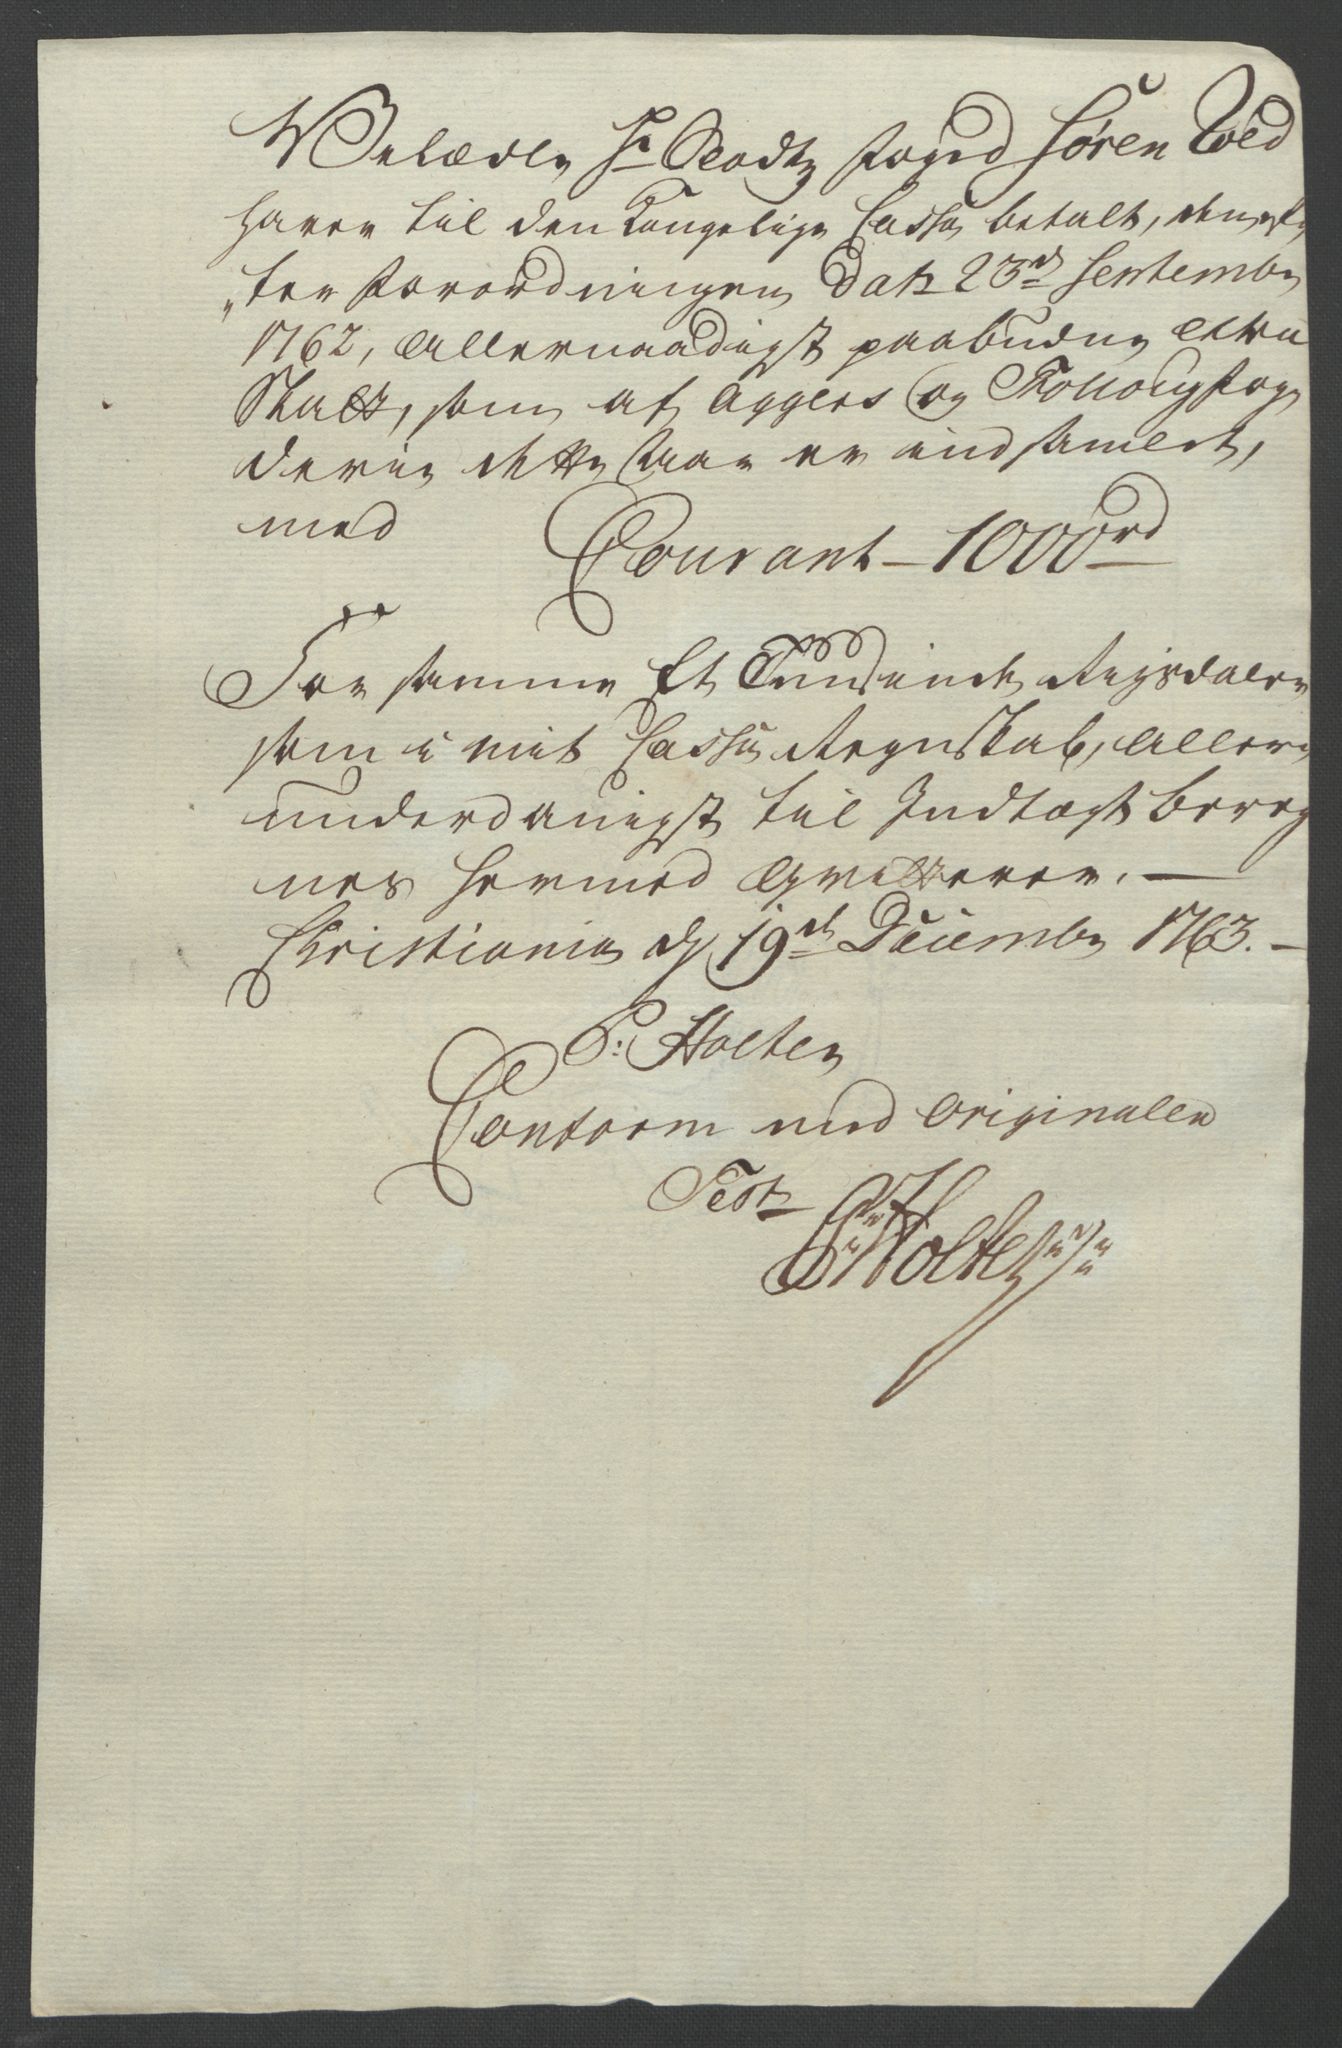 Velædle Hr Raadtz Foged Søren Wed
haver til den Kongelige Cassa betalt, den ef,
„ter Forordningen dat: 23de Septembr
1762, allernaadigst paabudne Extra
Skatt, som af Aggers og Follong Foge
derie dette Aar er indsamlet,
med
Courant – 1000rd
For samme Et Tuusinde Rigsdaler
som i mit Cassa Regnskab, aller,
underdanigst til Indtægt bereg
nes hermed qvitterer. —
Christiania d 19de Decembr 1763. –
P: Holten
Conform med originalen
Test
P Holte